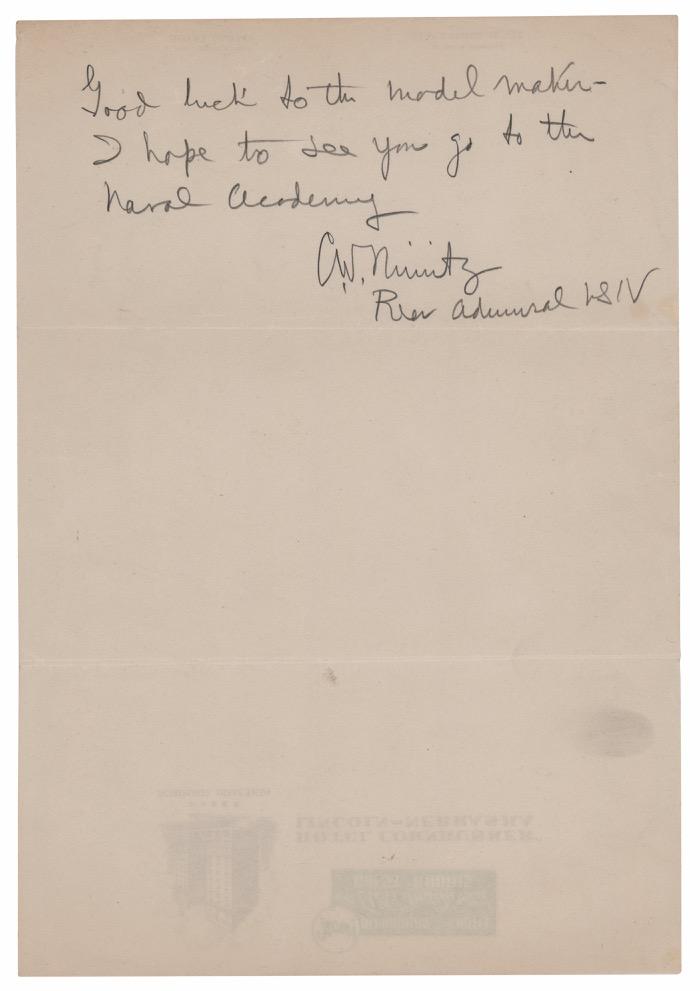 Good luck to the model maker-
I hope to see you go to the
Naval Academy
C.W. Nimitz
Rear Admiral USN
HOTEL CORNHUSKER
LINCOLN-NEBRASKA